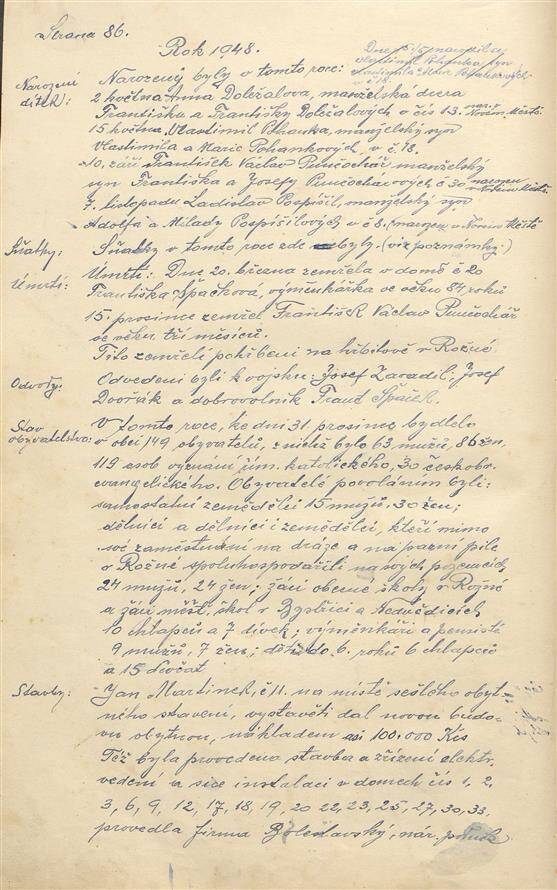 Strana 86.
Rok 1948.
Narození dítek:
Narozený byly v tomto roce:
2 května Anna Doležalova, manželská dcera
Františka a Františky Doležalových v čís 13. nar. v Novém Městě
15 května Vlastimil Pohanka, manželský syn
Vlastimila a Marie Pohankových, v č. 18.
10. září František Václav Punčochář manželský
syn Františka a Josefy Punčochářových č 30 narozen v Novém Městě.
7. listopadu Ladislav Pospíšil, manželský syn
Adolfa a Milady Pospíšilových v č 8. (narozen v Novém Městě
Sňatky:
Sňatky v tomto roce zde byly. (viz poznámky.)
Úmrtí:
Úmrtí: Dne 20. března zemřela v domě č 20
Františka Špačková, výměnkářka ve věku 84 roků
15. prosince zemřel František Václav Punčochář
ve věku tří měsíců.
Tito zemřelí pohřbeni na hřbitově v Rožné
Odvody:
Odvedeni byli k vojsku: Josef Zavadil. Josef
Dvořák a dobrovolník Frant Špaček.
Stav obyvatelstva:
V tomto roce, ke dni 31 prosince bydlelo
v obci 149 obyvatelů, z nichž bylo 63 mužů, 86 žen,
119 osob vyznání řím. katolického, 30 českobr.
evangelického. Obyvatelé povoláním byli:
samostatní zemědělci 15 mužů, 30 žen;
dělníci a dělníci i zemědělci, kteří mimo
své zaměstnání na dráze a na parní pile
v Rožné spoluhospodařili na svých pozemcích
24 mužů, 24 žen; žáci obecné školy v Rožné
a žáci měšť. škol v Bystřici a Nedvědicích
10 chlapců a 7 dívek; výměnkáři a pensisté
9 mužů, 7 žen; dětí do 6. roků 6 chlapců
a 15 děvčat
Stavby:
Jan Martinek, č 11. na místě sešlého obyt-
ného stavení, vystavěti dal novou budo-
vu obytnou, nákladem asi 100.000 Kčs
Též byla provedena stavba a zřízení elektr.
vedení a sice instalaci v domech čís 1, 2,
3, 6, 9, 12, 17, 18, 19, 20 22, 23, 25, 27, 30, 33,
provedla firma Boleslavský, nár. podnik